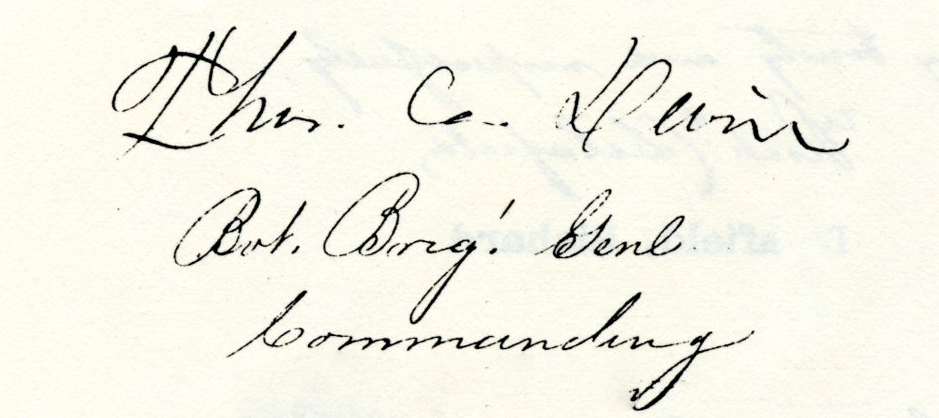 Thos. C. Devin
Bvt. Brig! Genl
Commanding